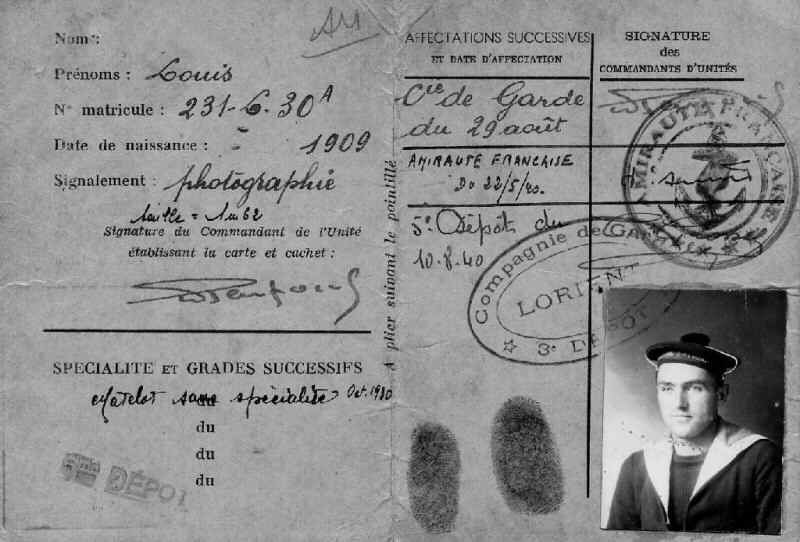 Nom :
Prénoms : Louis
N° matricule : 231-6.30 A
Date de naissance : 1909
Signalement : photographié
taille = 1m62
Signature du Commandant de l'Unité
établissant la carte et cachet :
SPECIALITE ET GRADES SUCCESSIFS
Matelot sans spécialité Oct. 1930
du
du
du
du
DÉPOT
A plier suivant le pointillé
AFFECTATIONS SUCCESSIVES
ET DATE D'AFFECTATION
Cie de Garde
du 29 août
AMIRAUTÉ FRANCAISE
Du 22/5/40.
5e Dépôt du
10-8-40
SIGNATURE
des
COMMANDANTS D'UNITÉS
AMIRAUTÉ FRANÇAISE
Compagnie de Garde
LORIENT
3e DÉPOT